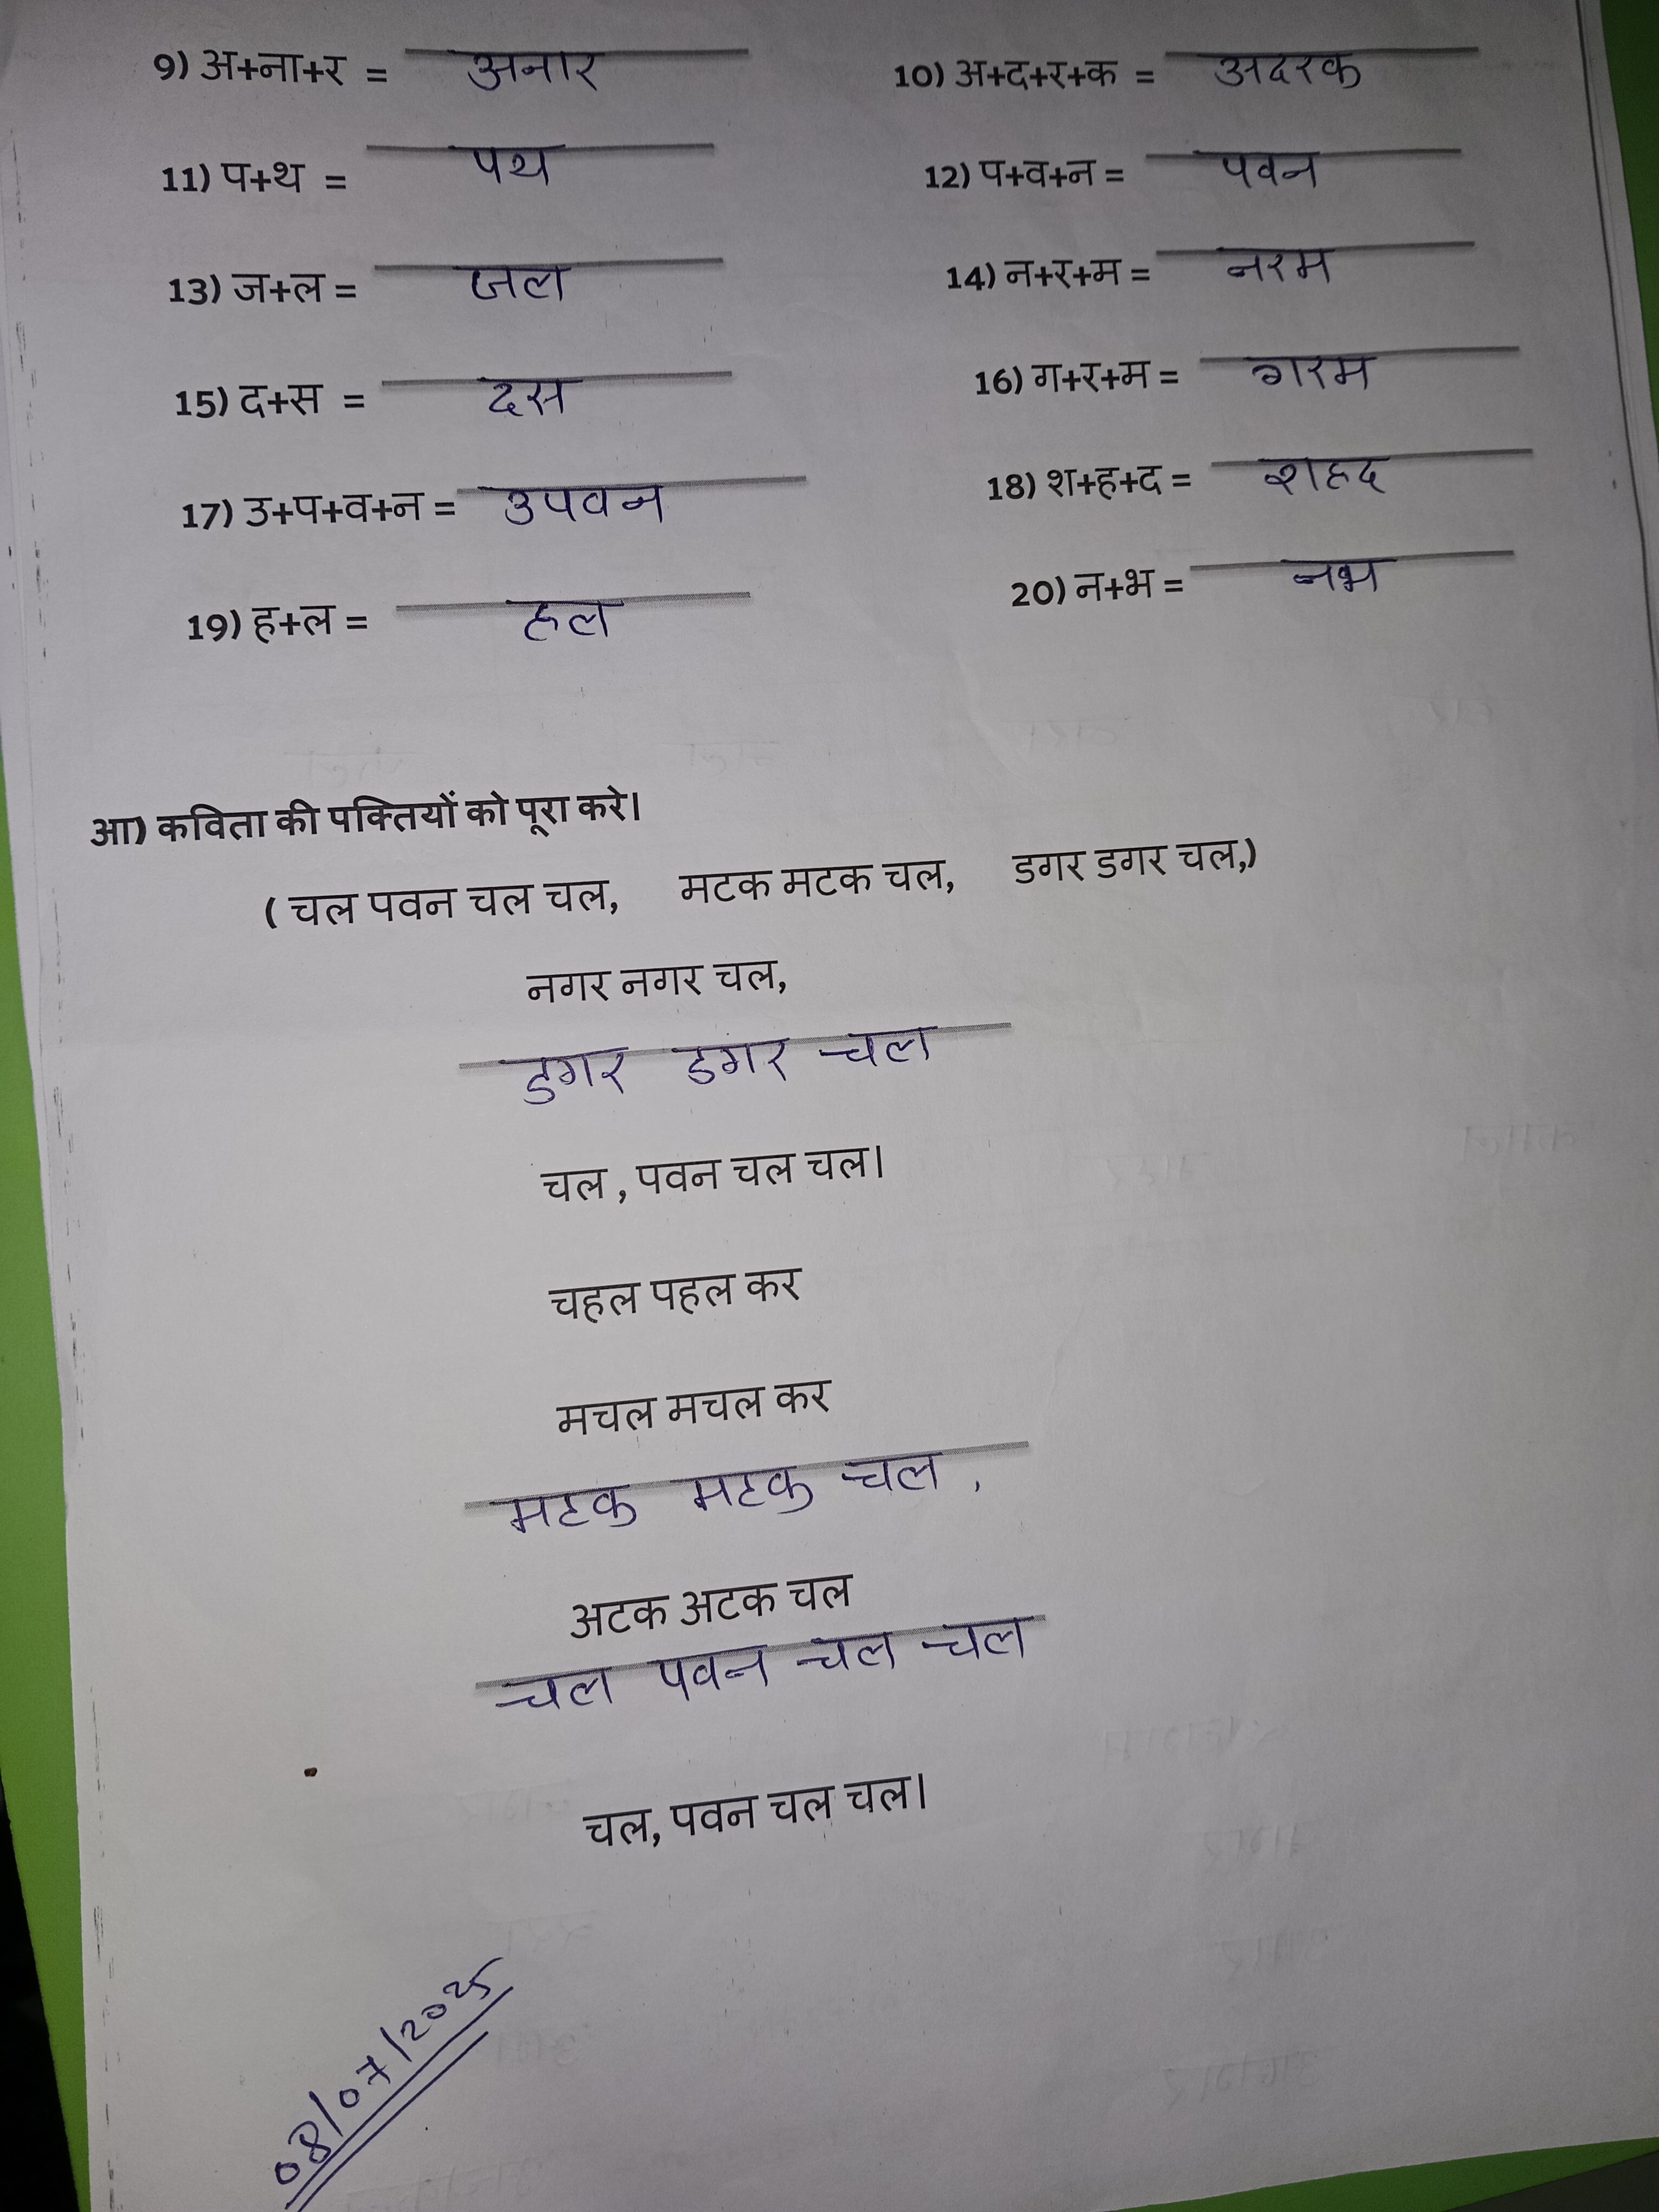 9) अ+ना+र = अनार 10) अ+द+र+क = अदरक
11) प+थ = पथ 12) प+व+न = पवन
13) ज+ल = जल 14) न+र+म = नरम
15) द+स = दस 16) ग+र+म = गरम
17) उ+प+व+न = उपवन 18) श+ह+द = शहद
19) ह+ल = हल 20) न+भ = नभ
आ) कविता की पक्तियों को पूरा करे।
( चल पवन चल चल, मटक मटक चल, डगर डगर चल,)
नगर नगर चल,
डगर डगर चल
चल , पवन चल चल।
चहल पहल कर
मचल मचल कर
मटक मटक चल ,
अटक अटक चल
चल पवन चल चल
चल, पवन चल चल।
08/07/2025